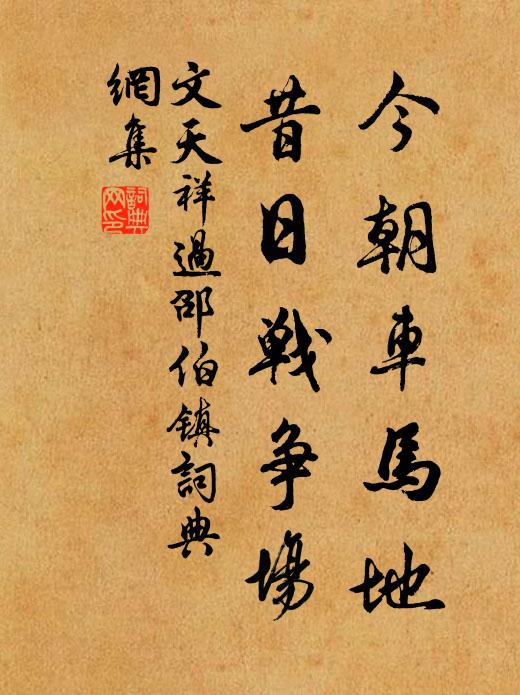 今朝車馬地
昔日戦争場
文天祥過邵伯鎮詞典
網集
詞典
网印